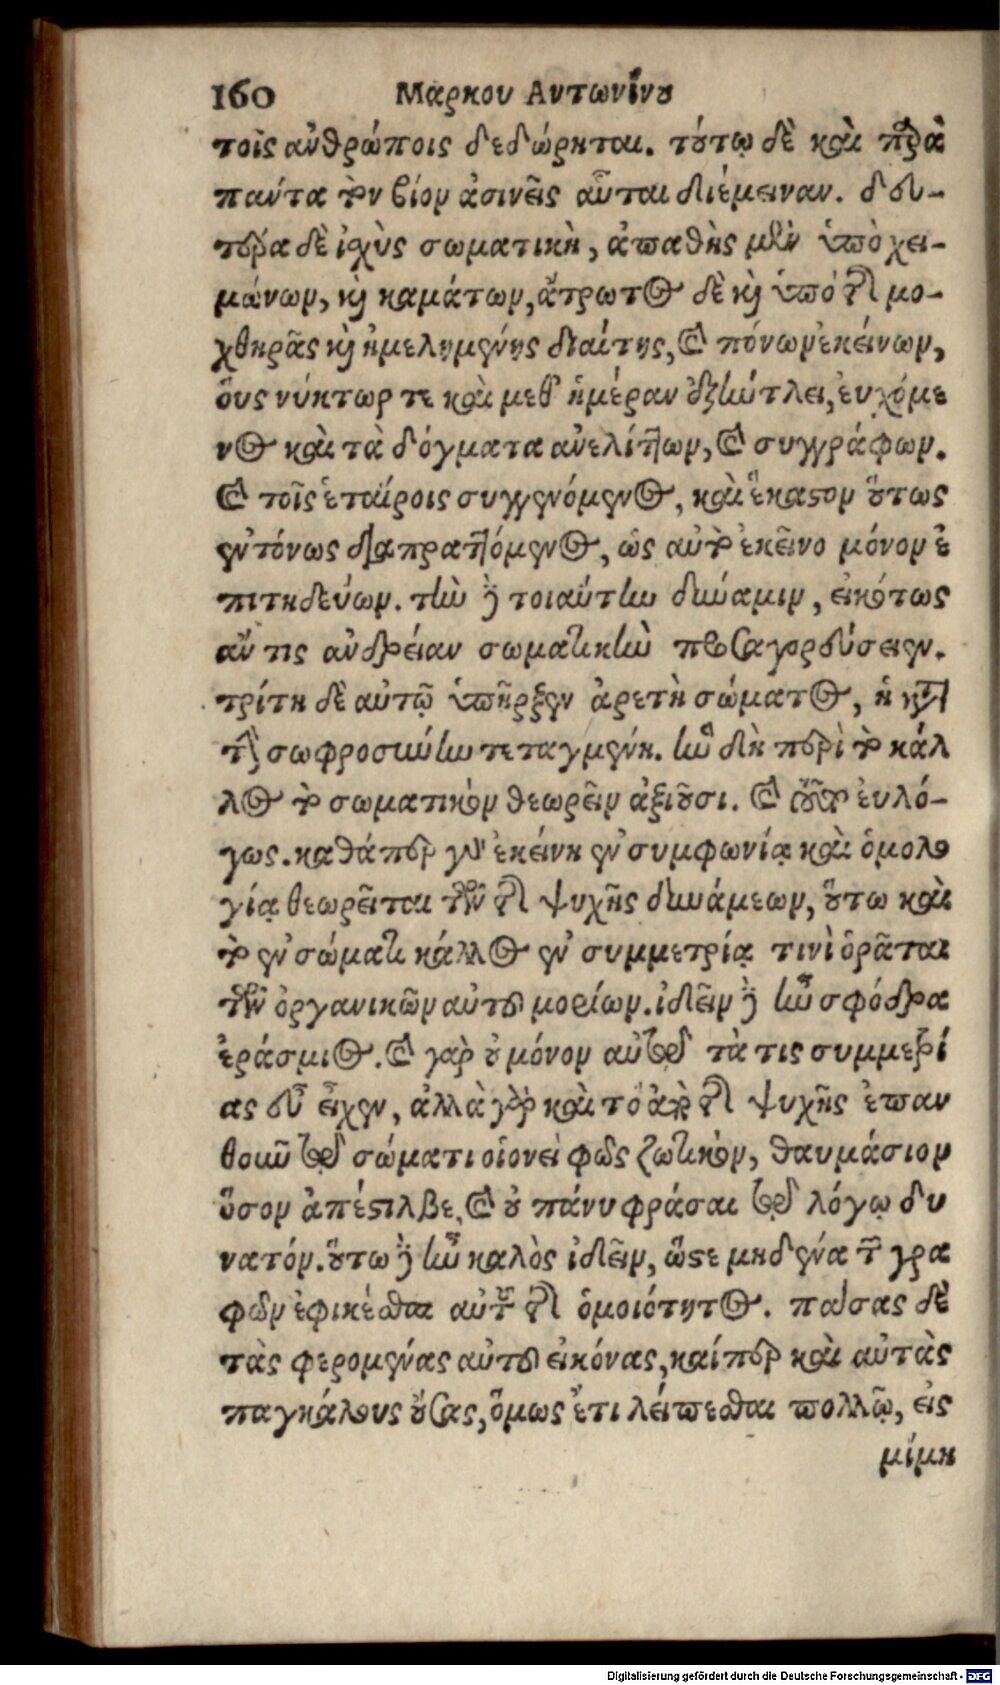 160 Μαρκου Αντωνίνου
τοῖς ἀνθρώποις δεδώρηται. τούτῳ δὲ καὶ παρὰ
πάντα τὸν βίον ἀσινεῖς αὗται διέμειναν. δευ-
τέρα δὲ ἰσχὺς σωματικὴ, ἀπαθὴς μὲν ὑπὸ χει-
μώνων, καὶ καμάτων, ἄτρωτος δὲ καὶ ὑπό τῆς μο-
χθηρᾶς καὶ ἠμελημένης διαίτης, καὶ πόνων ἐκείνων,
οὓς νύκτωρ τε καὶ μεθ' ἡμέραν ἐξήντλει, ευχόμε
νος καὶ τὰ δόγματα ἀνελίττων, καὶ συγγράφων.
καὶ τοῖς ἑταίροις συγγενόμενος, καὶ ἕκαστον οὕτως
ἐντόνως διαπραττόμενος, ὡς αὐτὸ ἐκεῖνο μόνον ἐ
πιτηδεύων. τὴν δὲ τοιαύτην δύναμιν, εἰκότως
ἄν τις ἀνδρείαν σωματικὴν προσαγορεύσειεν.
τρίτη δὲ αὐτῷ ὑπῆρξεν ἀρετὴ σώματος, ἡ κατὰ
τὴν σωφροσύνην τεταγμένη. ἣν δὴ περὶ τὸ κάλ
λος τὸ σωματικὸν θεωρεῖν ἀξιοῦσι. καὶ τοῦτο ευλό-
γως. καθάπερ γὰρ ἐκείνη ἐν συμφωνίᾳ καὶ ὁμολο
γίᾳ θεωρεῖται τῶν τῆς ψυχῆς δυνάμεων, οὕτω καὶ
τὸ ἐν σώματι κάλλος ἐν συμμετρίᾳ τινὶ ὁρᾶται
τῶν ὀργανικῶν αὐτοῦ μορίων. ἰδεῖν δὲ ἦν σφόδρα
ἐράσμιος. καὶ γὰρ οὐ μόνον αὐτῷ τὰ τις συμμετρί
ας εὖ εἶχεν, ἀλλὰ γὰρ καὶ τὸ ἀπὸ τῆς ψυχῆς ἐπαν
θοῦν τῷ σώματι οἱονεὶ φῶς ζωτικὸν, θαυμάσιον
ὅσον ἀπέστιλβε, καὶ οὐ πάνυ φράσαι τῷ λόγῳ δυ
νατόν. οὕτω δὲ ἦν καλὸς ἰδεῖν, ὥστε μηδένα τῶν γρα
φῶν ἐφικέσθαι αὐτοῦ τῆς ὁμοιότητος. πάσας δὲ
τὰς φερομένας αὐτοῦ εἰκόνας, καίπερ καὶ αὐτὰς
παγκάλους οὔσας, ὅμως ἔτι λείπεσθαι πολλῷ, εἰς
μίμη
Digitalisierung gefördert durch die Deutsche Forschungsgemeinschaft - DFG